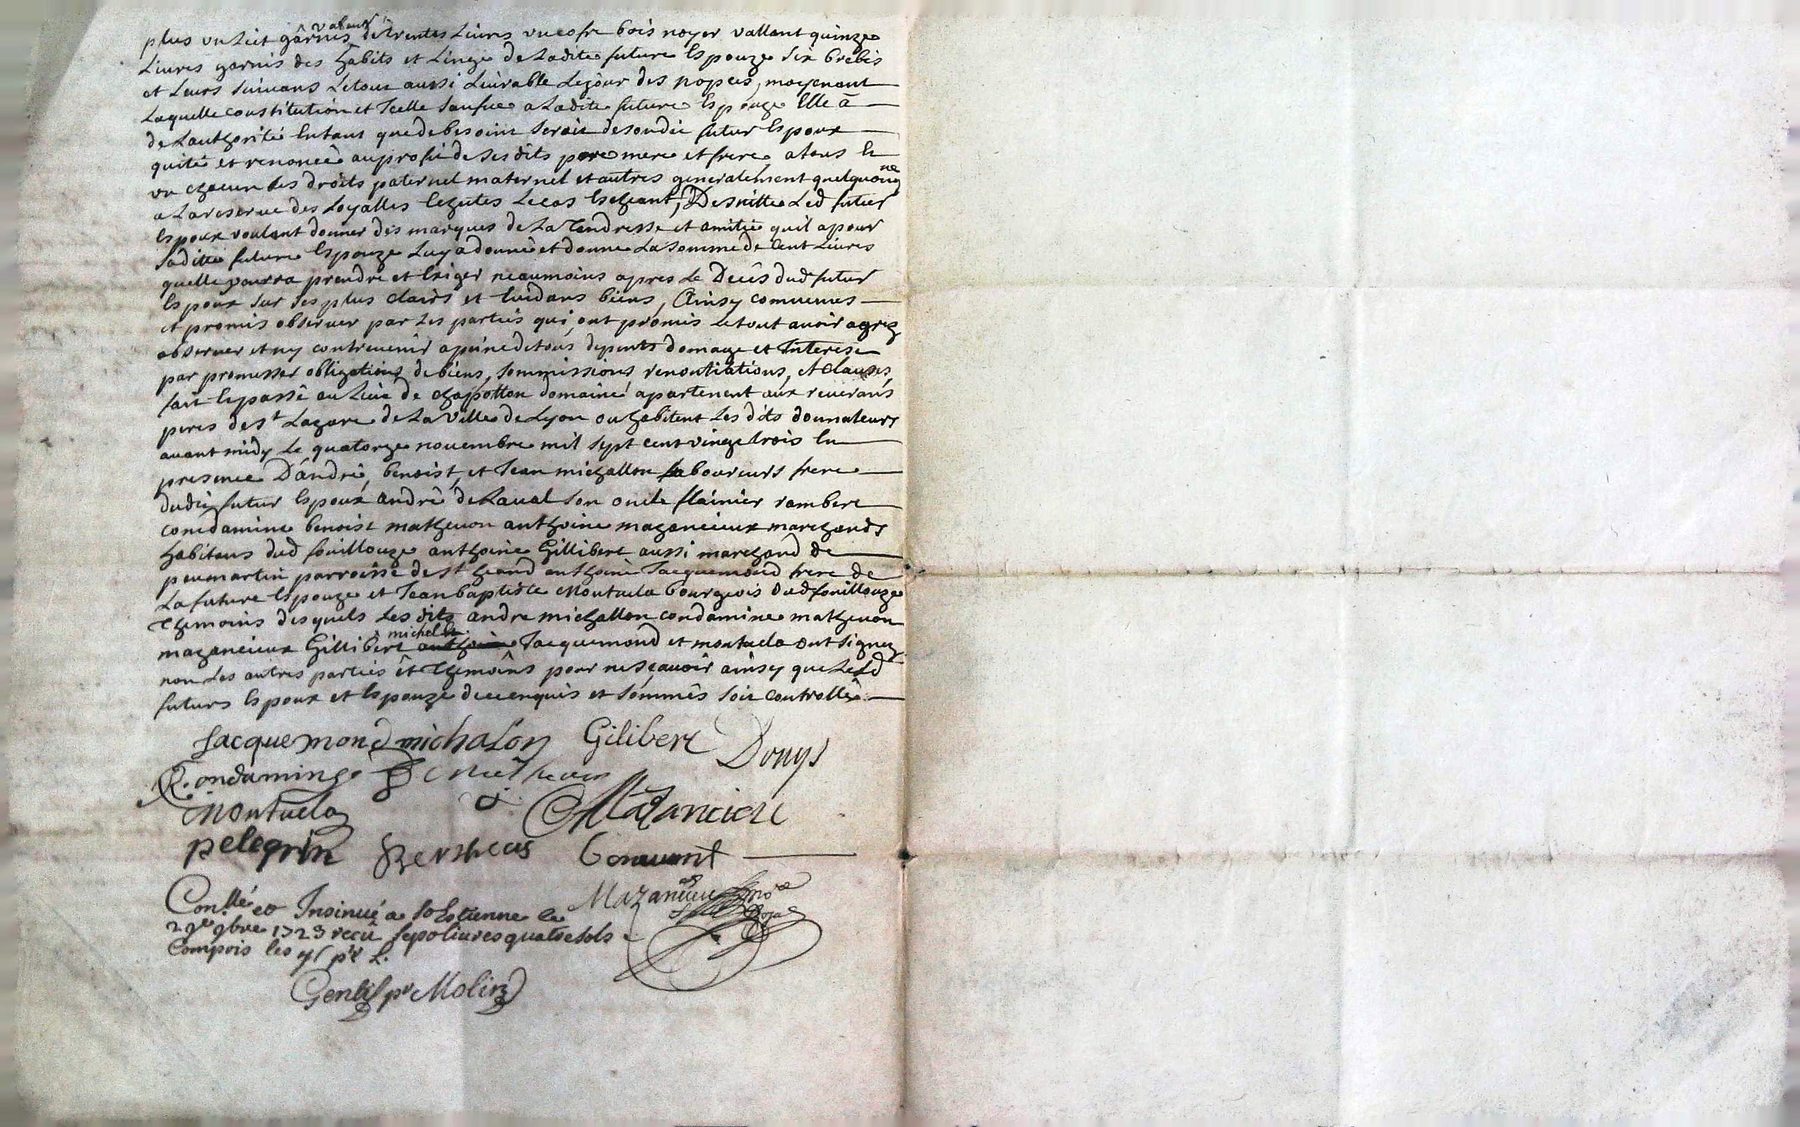 valeur
plus un Lict garnis de trentes Livres un cofre bois noyer vallant quinze
Livres garnis des habits et Linge de Ladite future Espouze six brebis
et Leurs suivans Letout aussi Livrable Lejour des nopces, moyenant
Laquelle constitution et Icelle saufue a Ladite future Espouze Elle à
de Lauthorité Entant que debesoins seroit desondit futur Espoux
quité et renoncée auproffit de ses dits pere mere et frere atous Et
un chacun Ses droits paternel maternel et autres generalement quelquonq
ne
a La reserve des Loyalles Echutes Le cas Escheant, Desuitte Led futur
Espoux voulant donner des marques de La Tendresse et amitie quil a pour
Sadite future Espouze Luy a donné et donne La somme de Cent Livres
quelle pourra prendre et Exiger neaumoins apres Le Decés dud futur
Espoux sur ses plus clairs et Evidans biens, Ainsy convenus
et promis observer par Les parties qui ont promis Letout avoir agrez
observer et ny contrevenir apeine de tous depents domage et Interest
par promesses obligations de biens, sommissions renontiations, et clauses,
fait Et passé au Lieu de chapotton domaine apartenent aux reverans
peres de St Lazare de La Ville de Lyon ou habitent Les dits donnateurs
avant midy Le quatorze novembre mil sept cent vingt trois En
presence D'andré, benoist, et Jean michallon Laboureurs frere
dudit futur Espoux andré de Laval son oncle rambert
condamine benoist mathevon anthoine mazancieux marchands
habitans dud fouillouze anthoine Gillibert aussi marchand de
peumartin parroisse de St heand anthoine Jacquemond frere de
La future Espouze et Jean baptiste Montuela bourgeois dud fouillouze
Themoins desquels Les dits andre michallon condamine mathevon
michel
mazancieux Gillibert anthoine Jacquemond et montuela ont signez
non Les autres parties et Themoins pour ne sçavoir ainsy que Lesd
futurs Espoux et Espouze deceenquis et sommés soit controllé
Jacquemond michalon Gilibert Donys
Condamine
Montuela Mazancieu
pelegrin
Mazancieu no re
Royal
Conllé et Insinué a St Estienne le
9bre 1723 receu sept livres quatre sols
Compris les
Gentil pr Molin